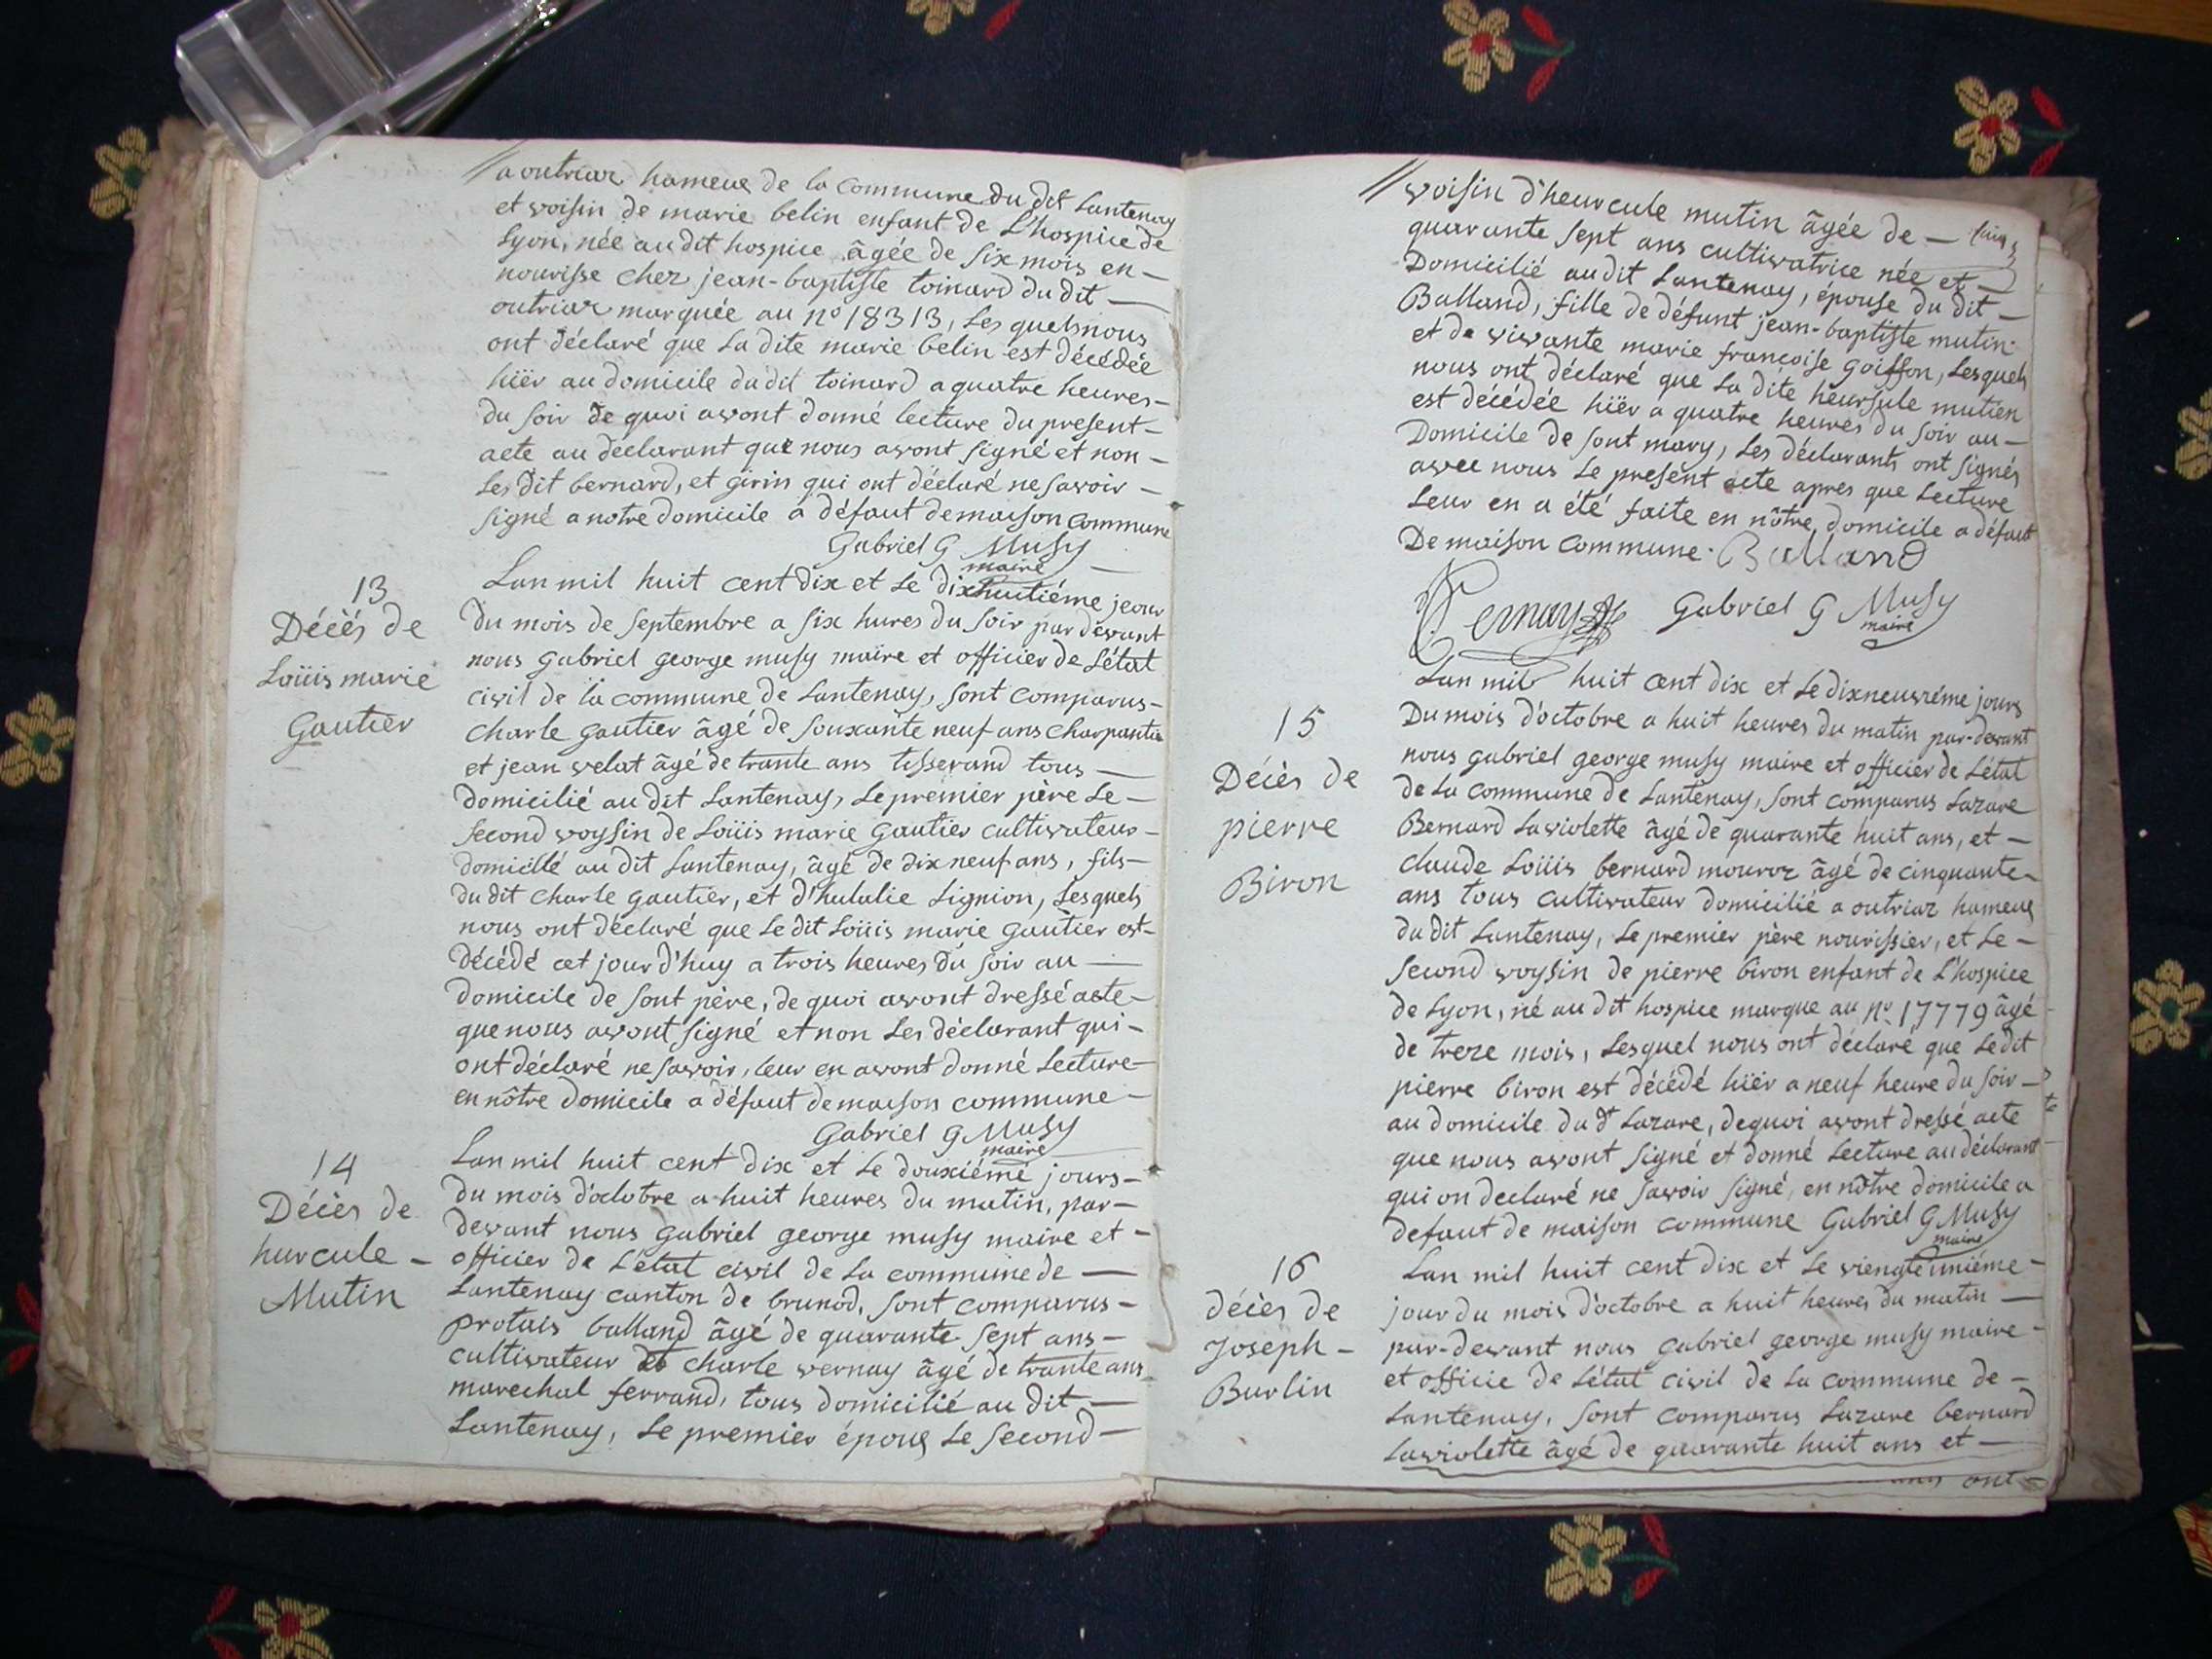 // a outriaz hameue de la commune du dit Lantenay
et voisin de marie belin enfant de L'hospice de
Lyon, née au dit hospice âgée de six mois en —
nourisse chez jean-baptiste toinard du dit —
outriaz marquée au n° 18313, Les quels nous
ont déclaré que La dite marie belin est décédée
hiër au domicile du dit toinard a quatre heures —
du soir de quoi avont donné lecture du present —
acte au declarant que nous avont signé et non —
Les dit bernard, et girin qui ont déclaré ne savoir —
signé a notre domicile a défaut de maison commune
Gabriel G Musy
maire
13
Décès de
Loüis marie
Gautier
Lan mil huit cent dix et Le dixhuitiéme jeour
Du mois de septembre a six hures du soir par devant
nous gabriel george musy maire et officier de L'état
civil de la commune de Lantenay, sont comparus —
Charle gautier âgé de souxante neuf ans charpantie
et jean velat âgé de trante ans tisserand tous —
domicilié au dit Lantenay, Le premier père Le —
second voysin de Loüis marie Gautier cultivateur —
domicillé au dit Lantenay, âgé de dix neuf ans, fils —
du dit charle gautier, et d'hulalie Lignion, Lesquels
nous ont déclaré que Le dit Loüis marie Gautier est —
décédé cet jour d'huy a trois heures du soir au —
domicile de sont père, de quoi avont dressé acte —
que nous avont signé et non Les déclarant qui —
ont déclaré ne savoir, leur en avont donné Lecture —
en nôtre domicile a défaut de maison commune —
Gabriel G Musy
maire
14
Décès de
hurcule —
Mutin
Lan mil huit cent dix et Le douxiéme jours —
du mois d'octobre a huit heures du matin, par —
devant nous gabriel george musy maire et —
officier de L'état civil de La commune de —
Lantenay canton de brunod, sont comparus —
protais balland âgé de quarante sept ans —
cultivateur et charle vernay âgé de trante ans
marechal ferrand, tous domicilié au dit —
Lantenay, Le premier époug Le second —
// voisin d'heurcule mutin âgée de —
quarante sept ans cultivatrice née et —
Domicilié au dit Lantenay, épouse du dit —
Balland, fille de défunt jean-baptiste mutin
et de vivante marie francoise goiffon, Lesquels
nous ont déclaré que La dite heursule mutien
est décédée hiër a quatre heures du soir au —
Domicile de sont mary, Les déclarants ont signés
avec nous Le present acte apres que Lecture
Leur en a été faite en nôtre domicile a défaut
De maison commune. Balland
Vernay Gabriel G Musy
maire
15
Décès de
pierre
Biron
Lan mil huit cent dix et Le dixneuvréme jours
Du mois d'octobre a huit heures du matin par-devant
nous gabriel george musy maire et officier de L'état
de La commune de Lantenay, sont comparus Lazare
Bernard Laviolette âgé de quarante huit ans, et —
claude Loüis bernard mouroz âgé de cinquante —
ans tous cultivateur domicilié a outriaz hameug
du dit Lantenay, Le premier père nourissier, et Le —
second voysin de pierre biron enfant de L'hospice
de Lyon, né au dit hospice marque au n° 17779 âgé
de treze mois, Lesquel nous ont déclaré que Le dit
pierre biron est décédé hiër a neuf heure du soir —
au domicile du dt Lazare, dequoi avont dressé acte
que nous avont signé et donné Lecture au déclarant
qui on declaré ne savoir signé, en nôtre domicile a
defaut de maison commune Gabriel G Musy
maire
16
décès de
Joseph —
Burlin
Lan mil huit cent dix et Le viengteuniéme —
jour du mois d'octobre a huit heures du matin —
par-devant nous gabriel george musy maire —
et officie de L'état civil de La commune de —
Lantenay, sont comparus Lazare bernard
Laviolette âgé de quarante huit ans et —
ont —